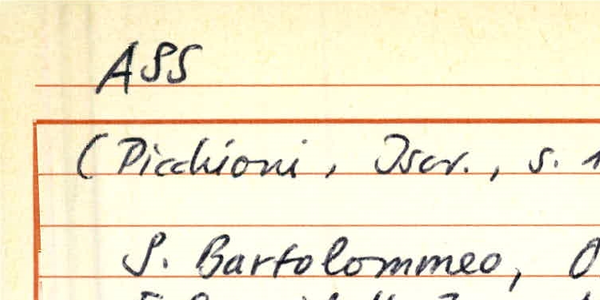 ASS
(Picchioni, Iscr., s. 1
S. Bartolommeo, O